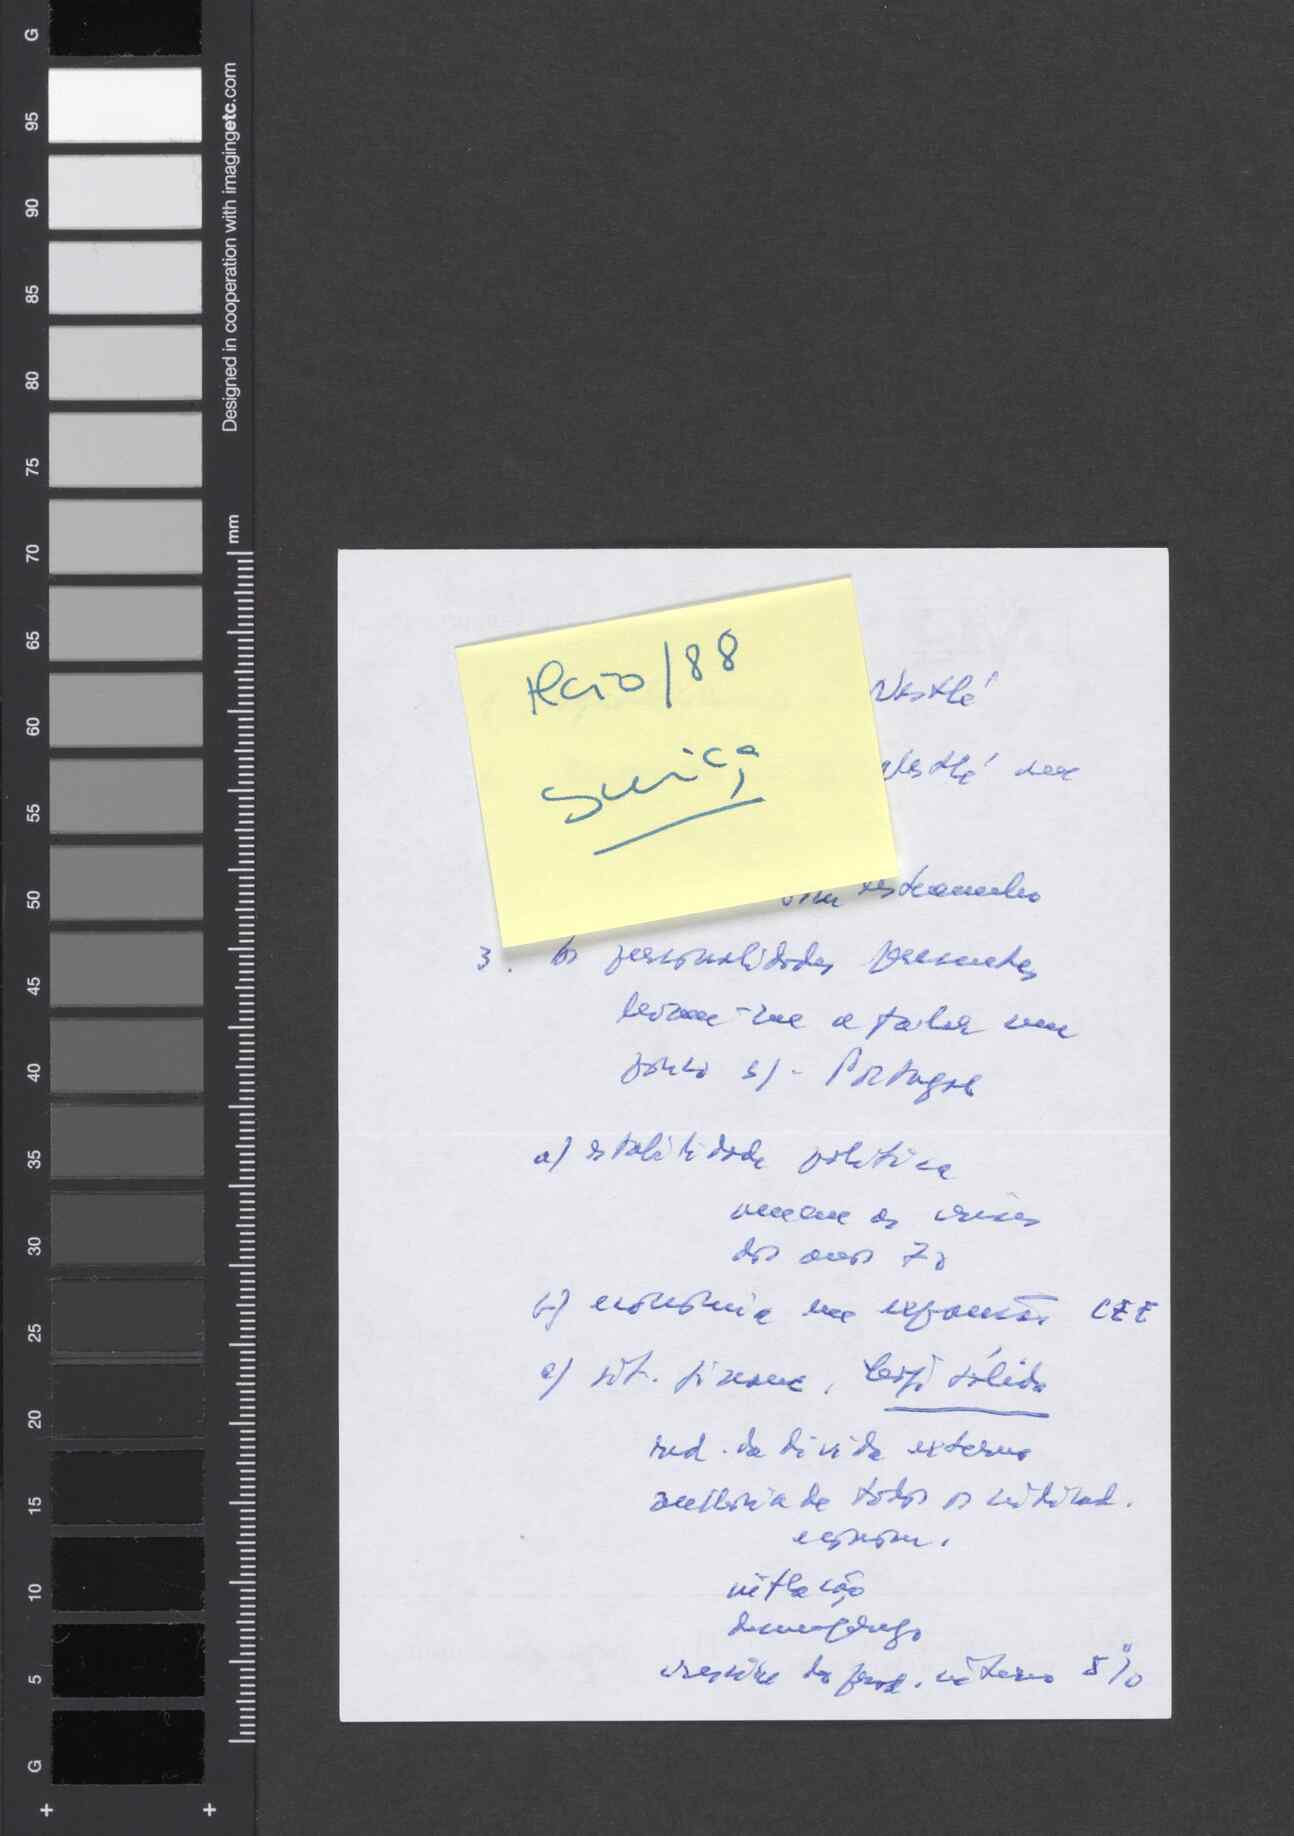 Maio/88
Suiça
Nestlé
Nestlé
estrangeiro
3. as personalidades presentes
levam-me a falar um
pouco s/- Portugal
a) estabilidade política
as crises
dos anos 70
b) economia em expansão CEE
c) sit. financ. sólida
red. da divida externa
melhoria de todos os indicad.
econom.
inflação
desemprego
do prod. interno 5%
Designed in cooperation with imagingetc.com
mm
G
95
90
85
80
75
70
65
60
55
50
45
40
35
30
25
20
15
10
5
G